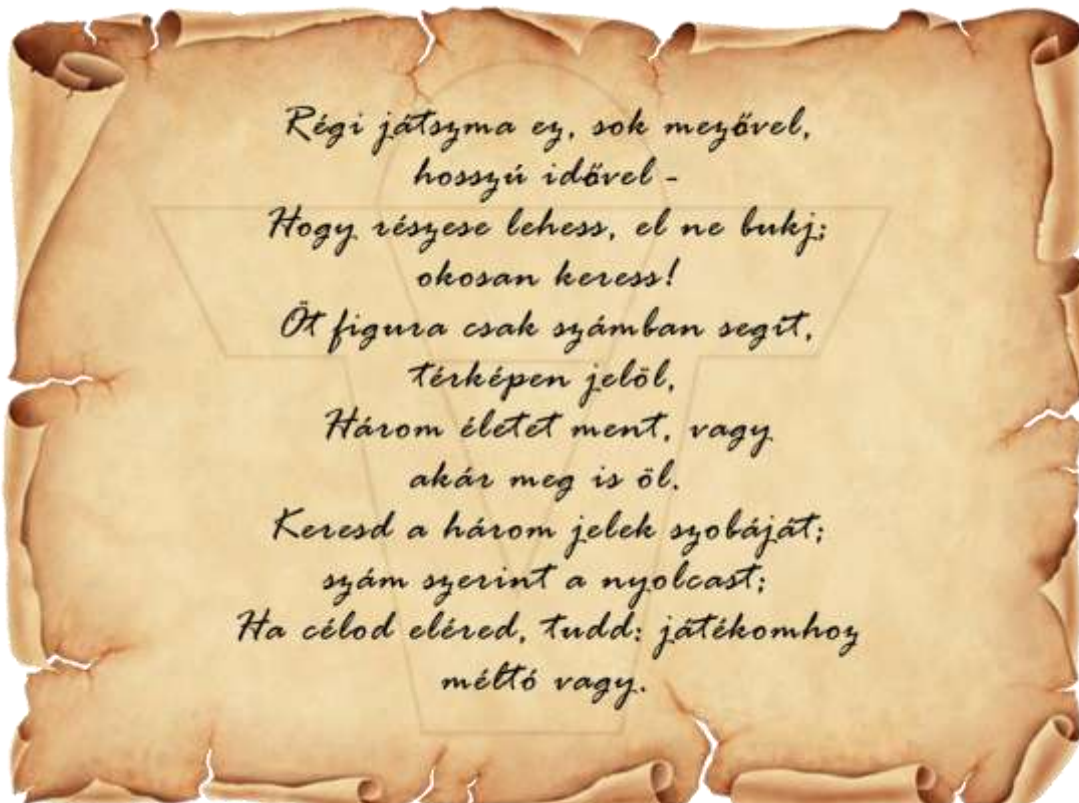 Régi játszma ez, sok mezővel,
hosszú idővel -
Hogy részese lehess, el ne bukj;
okosan keress!
Öt figura csak számban segít,
térképen jelöl,
Három életet ment, vagy
akár meg is öl.
Keresd a három jelek szobáját;
szám szerint a nyolcast;
Ha célod eléred, tudd: játékomhoz
méltó vagy.